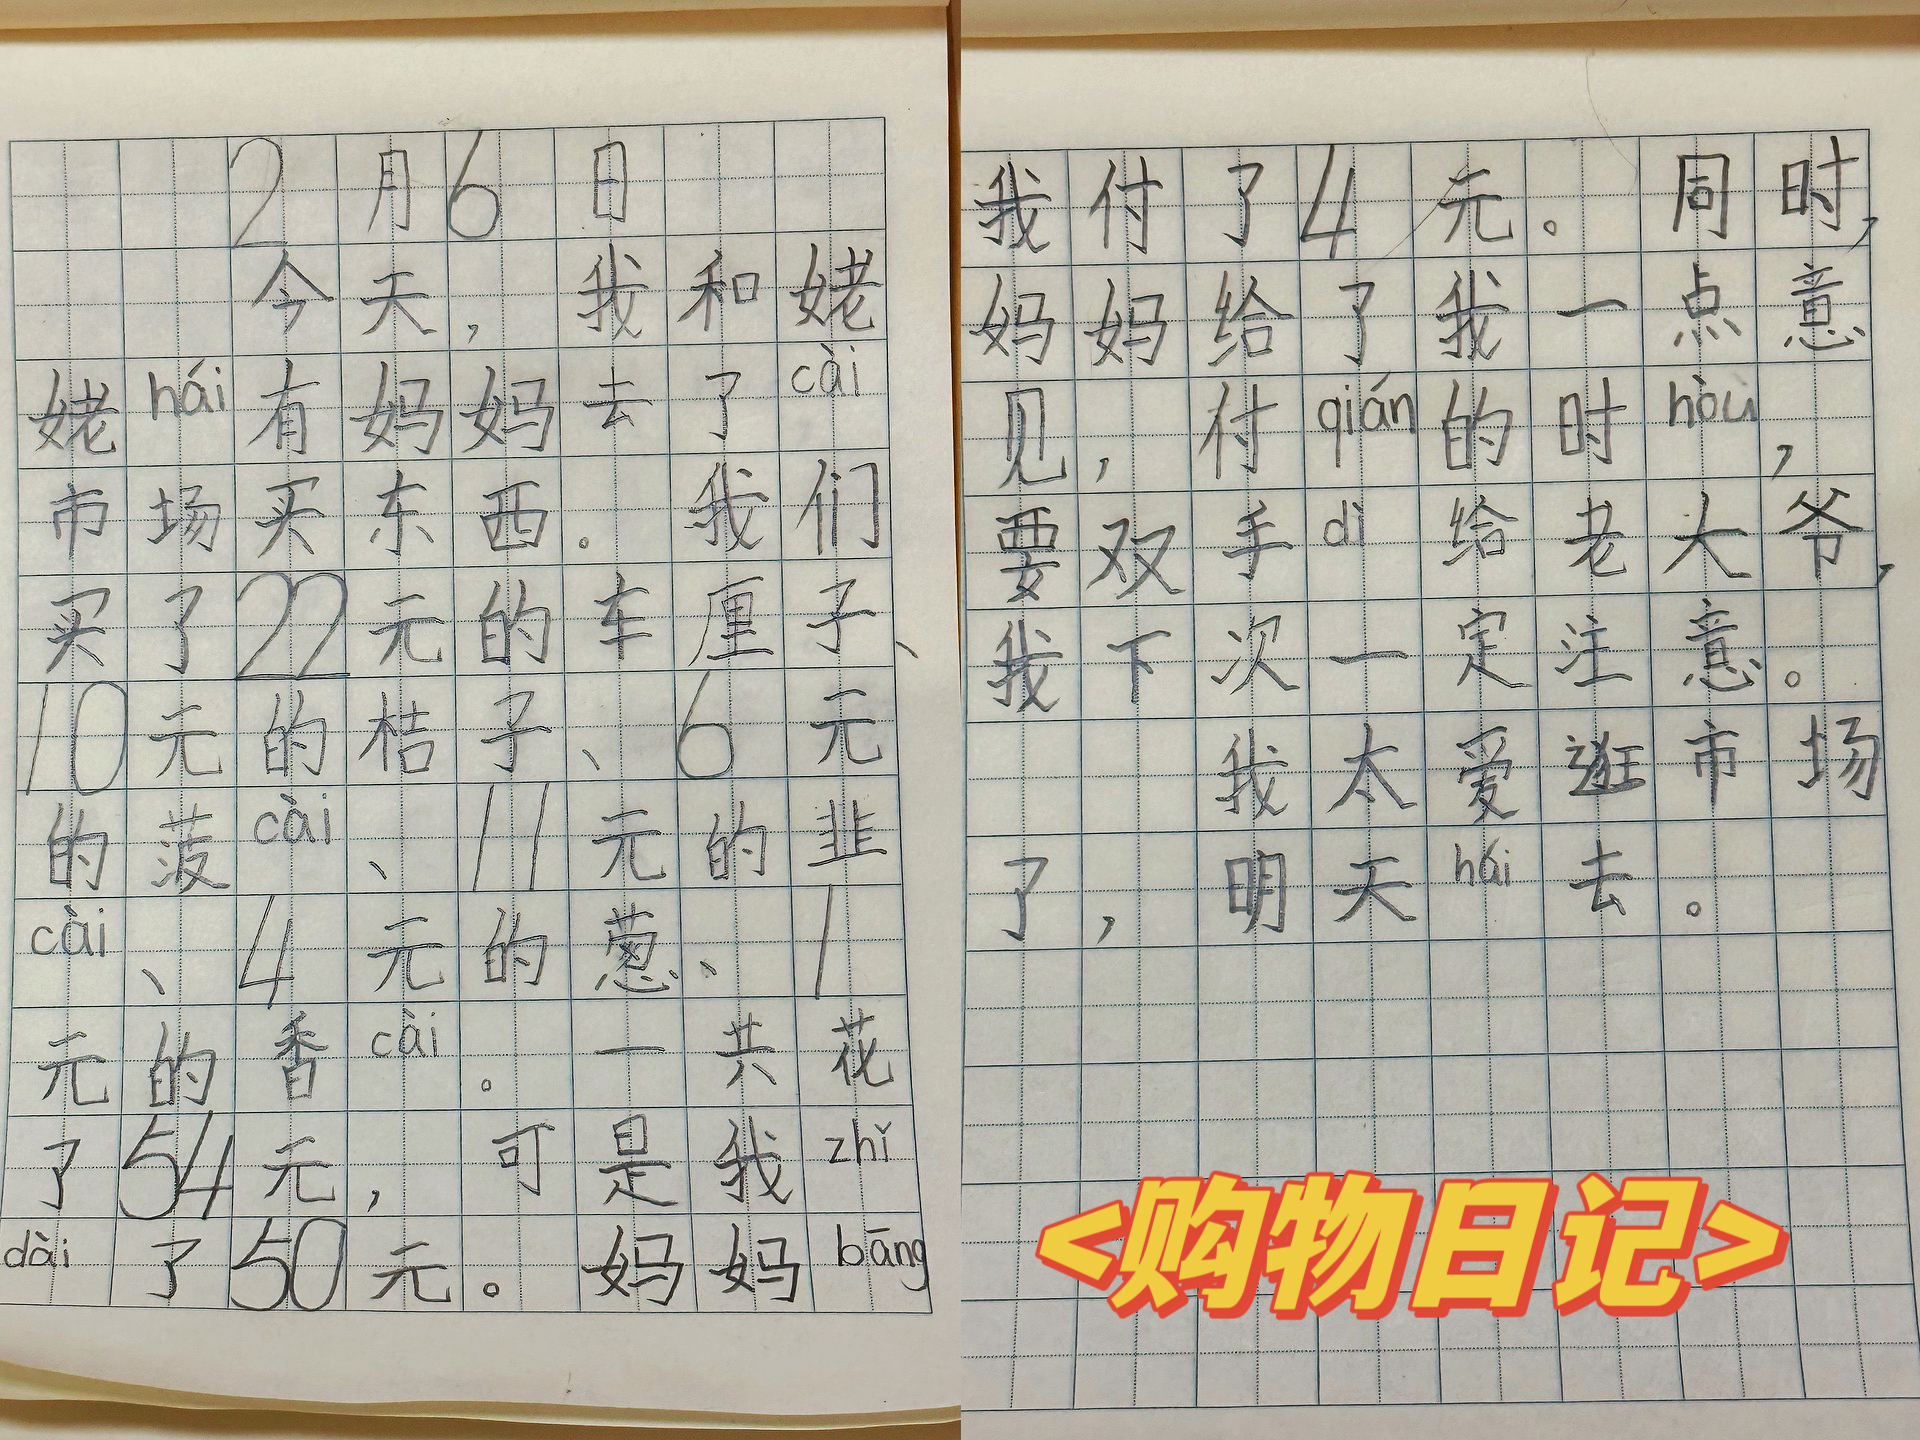 2月6日
今天，我和姥
姥hái有妈妈去了cài
市场买东西。我们
买了22元的车厘子、
10元的桔子、6元
的菠cài、11元的韭
cài、4元的葱、1
元的香cài。一共花
了54元，可是我zhǐ
dài了50元。妈妈bāng
我付了4元。同时，
妈妈给了我一点意
见，付qián的时hòu，
要双手dì给老大爷，
我下次一定注意。
我太爱逛市场
了，明天hái去。
<购物日记>